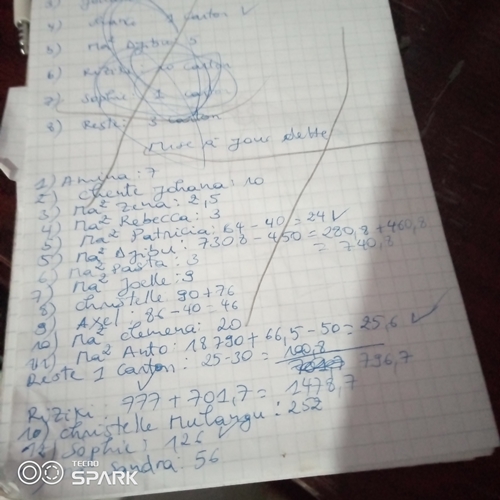 4) 1 carton ✓
5) Ma² Djibu 5
6) Riziki carton
7) Sophie 1 carton
8) Reste: 3 carton
Mise à jour dette
1) Amina: 7
2) cliente Johana: 10
3) Ma² Zena: 2,5
4) Ma² Rebecca: 3
5) Ma² Patricia: 64 - 40 = 24 ✓
5) Ma² Djibu: 730,8 - 450 = 280,8 + 460,8
= 740,8
6) Ma² Pasta: 3
7) Ma² Joelle: 9
8) Christelle: 90 + 76
9) Axel: 86 - 40 = 46
10) Ma² Clemena: 20
11) Ma² Anto: 18790 + 66,5 - 50 = 25,6 ✓
Reste 1 carton: 25-30 = 100,8
796,7
Riziki: 777 + 701,7 = 1478,7
10) Christelle Mulangu: 252
12) Sophie: 126 ✓
Sandra: 56
TECNO
SPARK